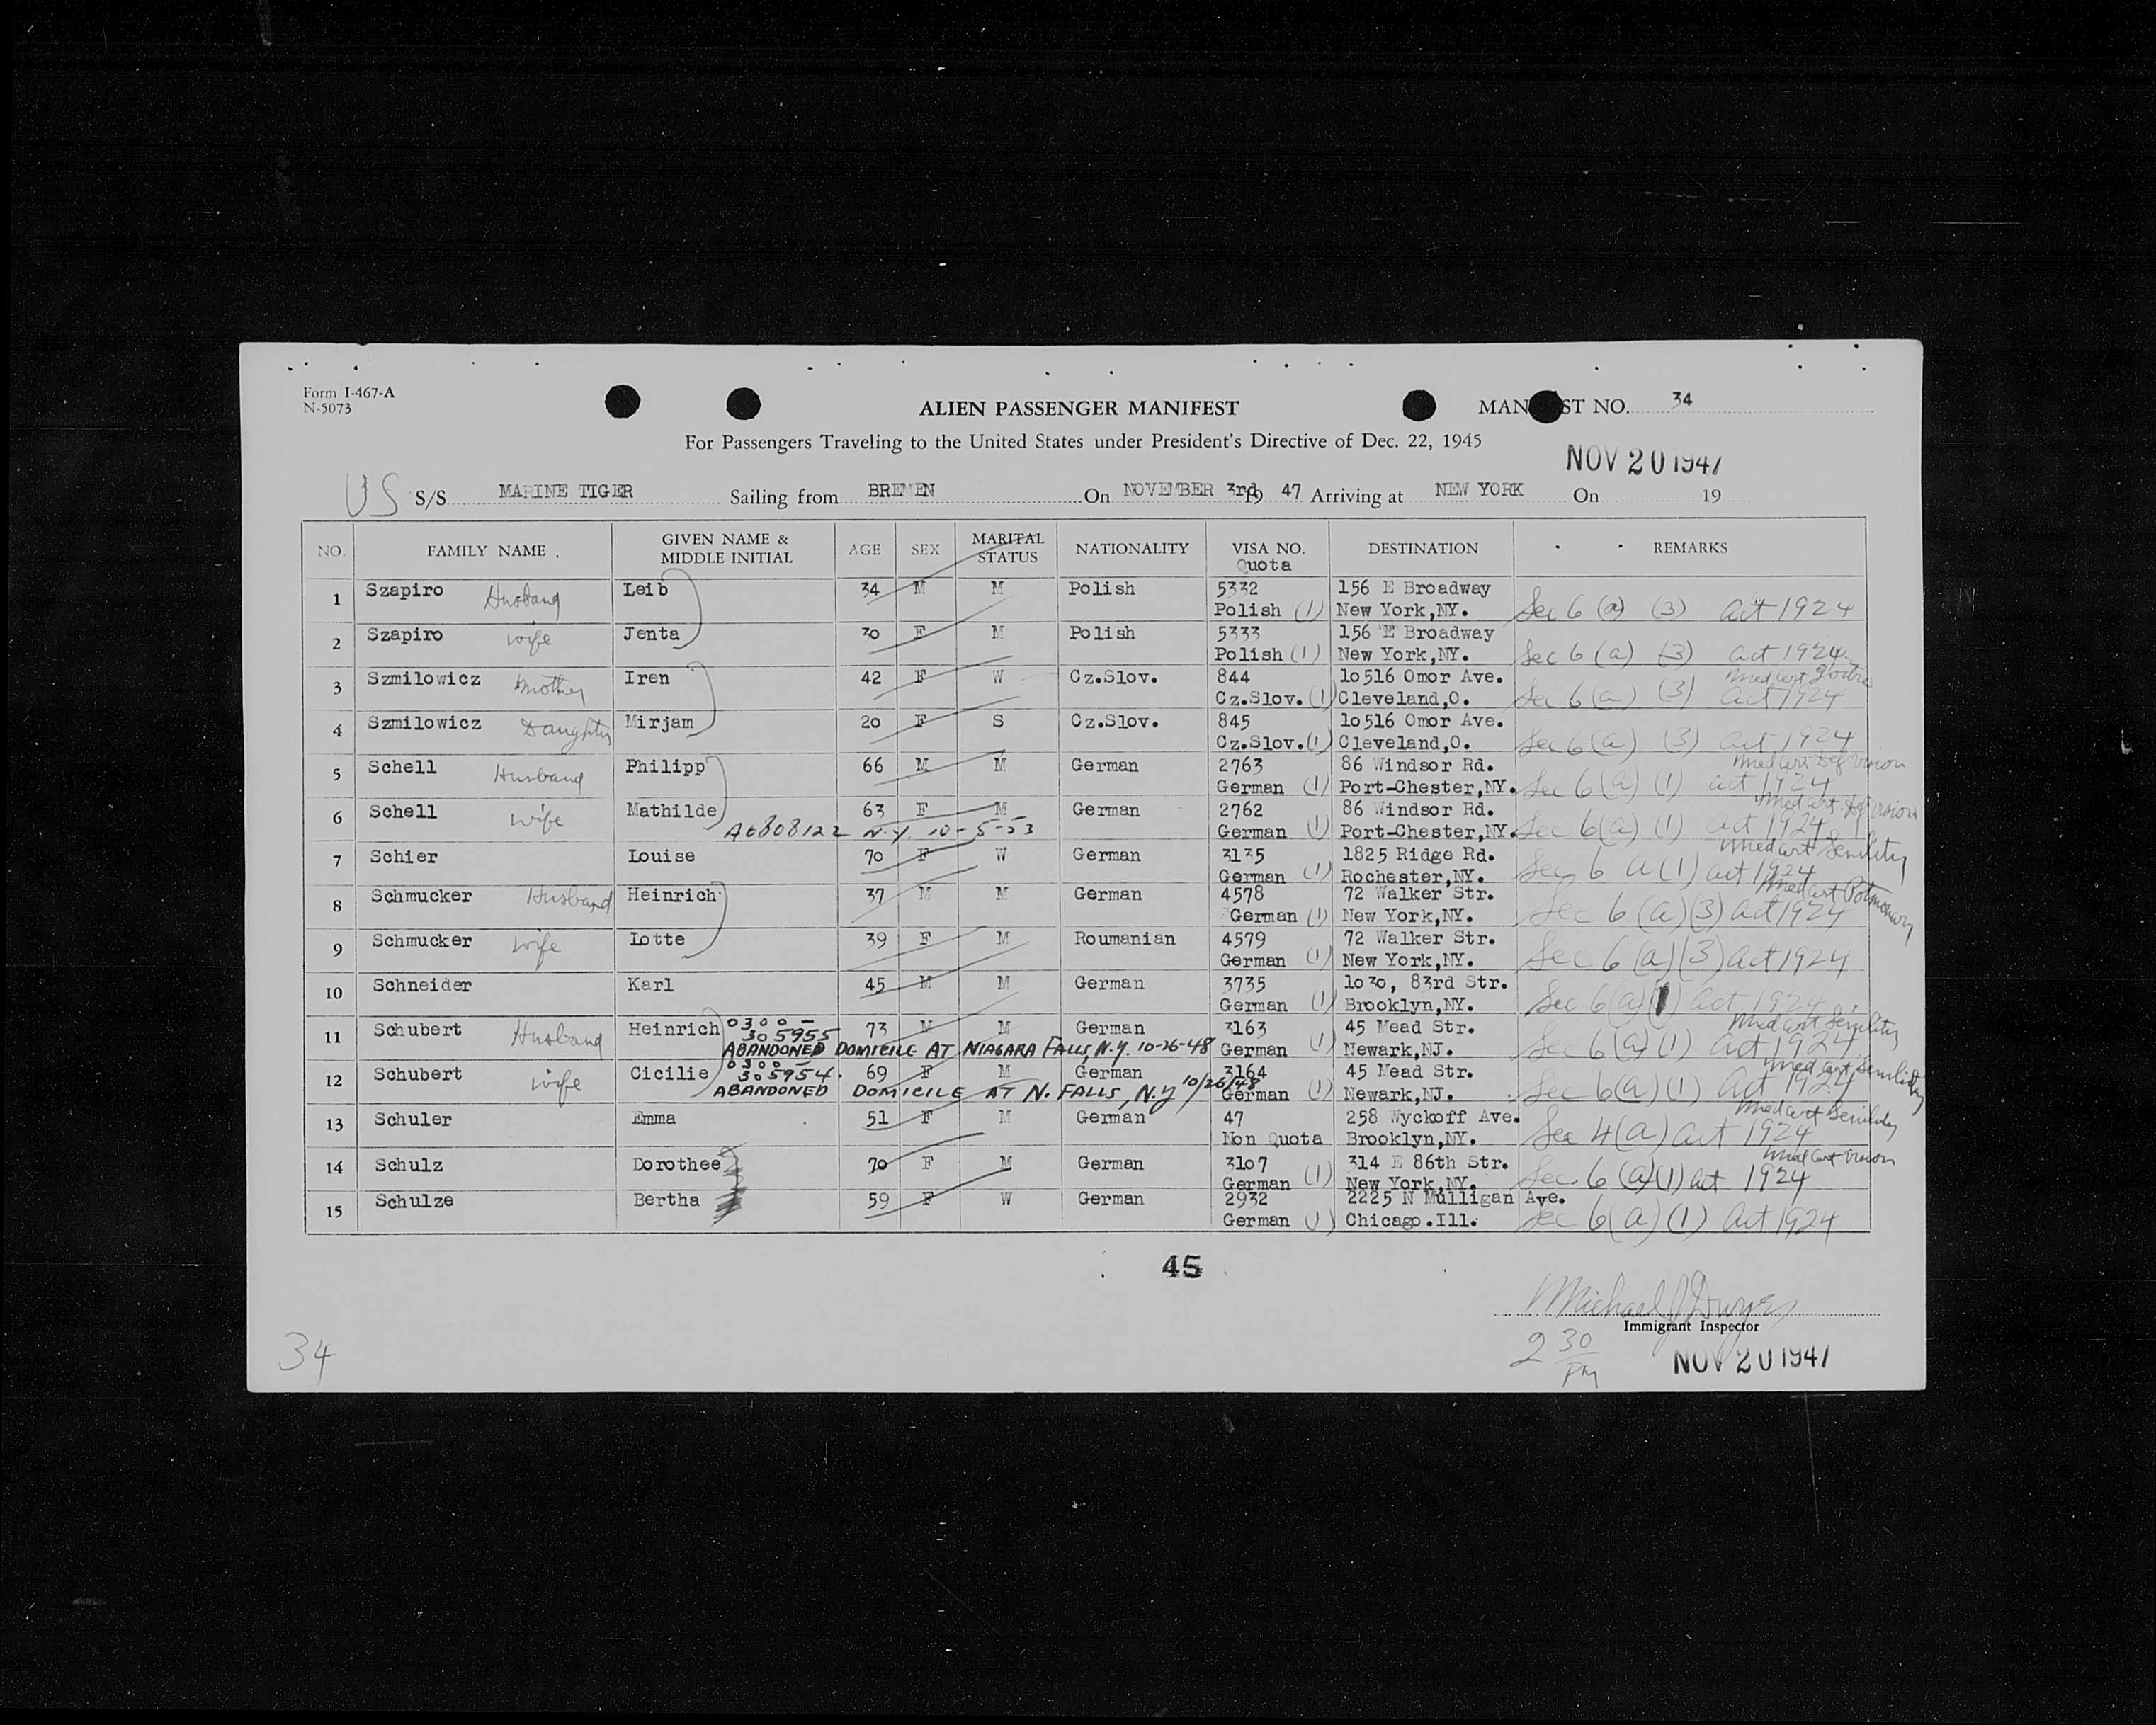 Form I-467-A
N-5073
ALIEN PASSENGER MANIFEST
MAN ST NO. 34
For Passengers Traveling to the United States under President's Directive of Dec. 22, 1945
NOV 20 1947
US S/S MARINE TIGER Sailing from BREMEN On NOVEMBER 3rd 19 47 Arriving at NEW YORK On 19
NO. FAMILY NAME GIVEN NAME & MIDDLE INITIAL AGE SEX MARITAL STATUS NATIONALITY VISA NO. Quota DESTINATION REMARKS
1 Szapiro Husband Leib 34 M M Polish 5332 156 E Broadway
Polish (1) New York,NY. Sec 6 (a) (3) Act 1924
2 Szapiro wife Jenta 30 F M Polish 5333 156 E Broadway
Polish (1) New York,NY. Sec 6 (a) (3) act 1924
3 Szmilowicz Mother Iren 42 F W Cz.Slov. 844 1o516 Omor Ave. Med Cert
Cz.Slov. (1) Cleveland,O. Sec 6 (a) (3) act 1924
4 Szmilowicz Daughter Mirjam 20 F S Cz.Slov. 845 1o516 Omor Ave.
Cz.Slov. (1) Cleveland,O. Sec 6 (a) (3) act 1924
5 Schell Husband Philipp 66 M M German 2763 86 Windsor Rd. Med Cert Def vision
German (1) Port-Chester,NY. Sec 6 (a) (1) act 1924
6 Schell wife Mathilde 63 F M German 2762 86 Windsor Rd. Med Cert Def vision
A6808122 N.Y. 10-5-53 German (1) Port-Chester,NY. Sec 6(a) (1) act 1924
7 Schier Louise 70 F W German 3135 1825 Ridge Rd. Med Cert Senility
German (1) Rochester,NY. Sec 6 a (1) act 1924
8 Schmucker Husband Heinrich 37 M M German 4578 72 Walker Str. Med Cert
German (1) New York,NY. Sec 6 (a) (3) act 1924
9 Schmucker wife Lotte 39 F M Roumanian 4579 72 Walker Str.
German (1) New York,NY. Sec 6 (a) (3) act 1924
10 Schneider Karl 45 M M German 3735 1o3o, 83rd Str.
German (1) Brooklyn,NY. Sec 6(a) 1 act 1924
11 Schubert Husband Heinrich 0300- 305955 73 M M German 3163 45 Mead Str. Med Cert Senility
ABANDONED DOMICILE AT NIAGARA FALLS, N.Y. 10-26-48 German (1) Newark,NJ. Sec 6(a) (1) act 1924
12 Schubert wife Cicilie 0300 305954. 69 F M German 3164 45 Mead Str. Med Cert Senility
ABANDONED DOMICILE AT N. FALLS, N.Y 10/26/48 German (1) Newark,NJ. Sec 6(a) (1) act 1924
13 Schuler Emma 51 F M German 47 258 Wyckoff Ave. Med Cert Senility
Non Quota Brooklyn,NY. Sec 4(a) act 1924
14 Schulz Dorothee 70 F M German 3107 314 E 86th Str. Med Cert vision
German (1) New York,NY. Sec. 6 (a)(1) act 1924
15 Schulze Bertha 59 F W German 2932 2225 N Mulligan Ave.
German (1) Chicago.Ill. Sec 6(a) (1) Act 1924
45
Michael J Dwyer
Immigrant Inspector
34
2 30 PM
NOV 20 1947